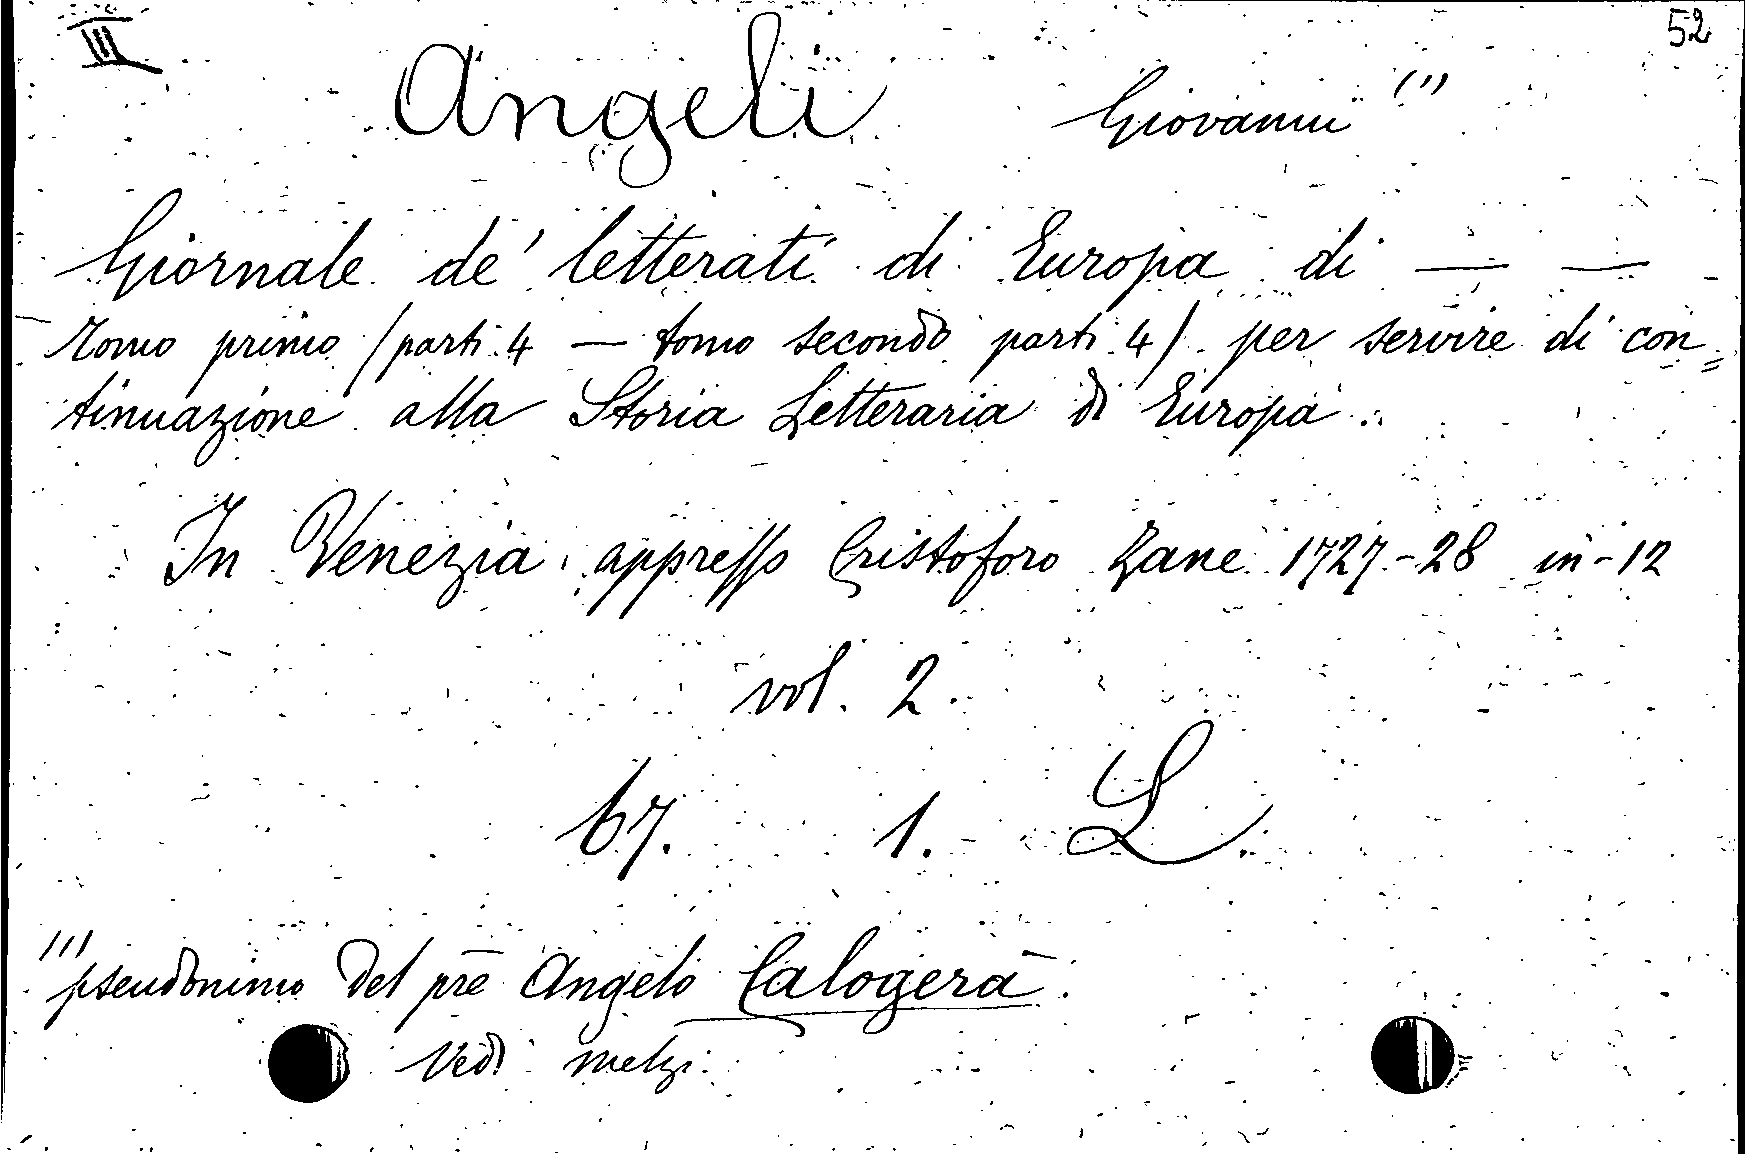 III
52
Angeli Giovanni (1)
Giornale de' letterati di Europa di — —
Tomo primo (parti 4 — tomo secondo parti 4) per servire di con=
tinuazione alla Storia Letteraria di Europa.
In Venezia, appresso Cristoforo Zane 1727-28 in-12
vol. 2.
67. 1. L.
(1) pseudonimo del pre Angelo Calogerà.
Vedi Melzi.